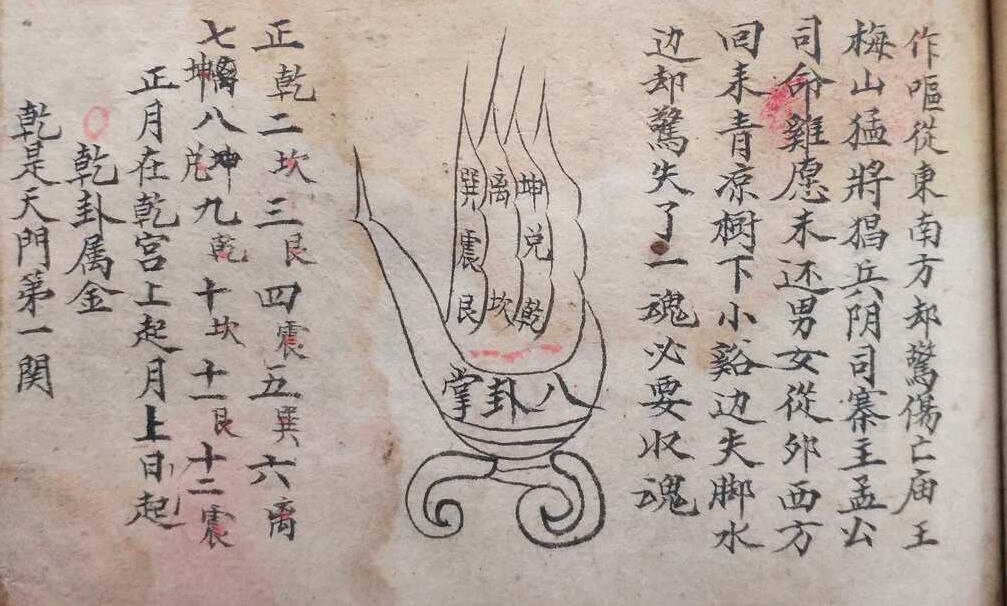 作嘔從東南方却驚傷亡庙王
梅山猛將猖兵阴司寨主孟公
司命雞愿未还男女從外西方
回来青凉樹下小谿边失脚水
边却驚失了一魂必要收魂
巽離坤
震兑
艮坎乾
八卦掌
正乾二坎三艮四震五巽六离
七坤八坤兑九乾十坎十一艮十二震
正月在乾宮上起月上日起
乾卦属金
乾是天門第一関